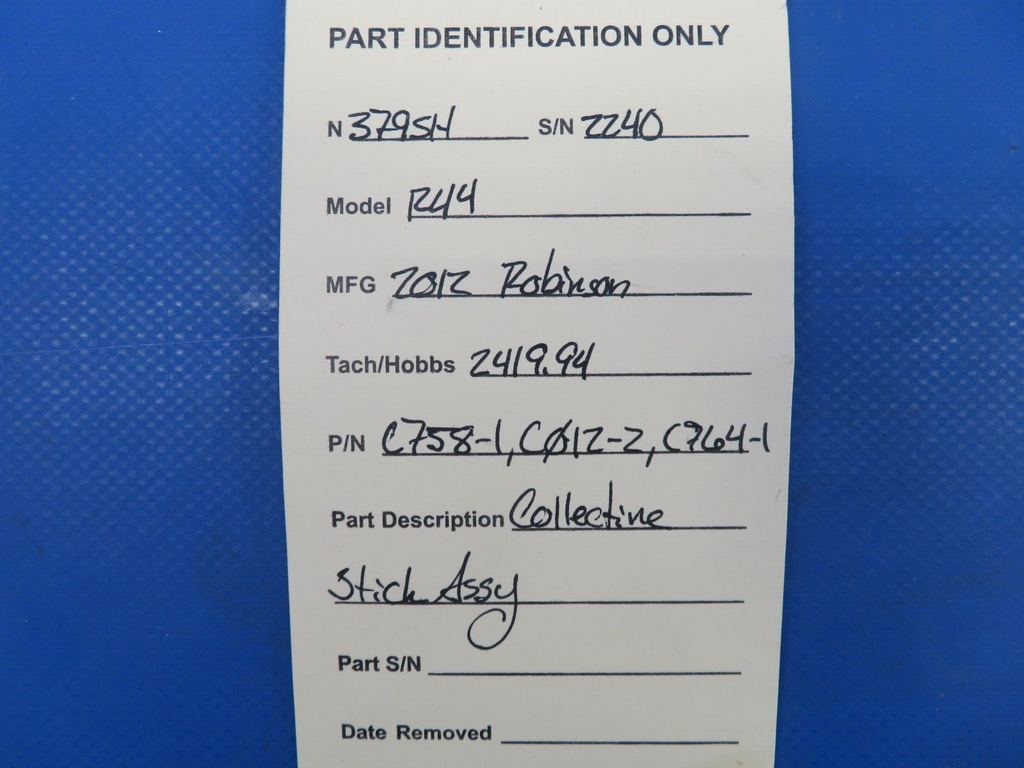 PART IDENTIFICATION ONLY
N 3795H S/N 2240
Model R44
MFG 2012 Robinson
Tach/Hobbs 2419.94
P/N C758-1, CØ12-2, C764-1
Part Description Collective
Stick Assy
Part S/N
Date Removed